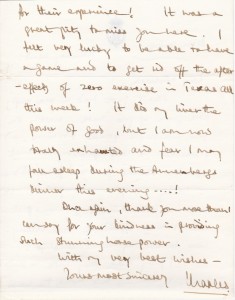 for their experience! It was a
great pity to miss you here. I
felt very lucky to be able to have
a game and to get rid off the after
-effects of zero exercise in Texas all
this week! It did my liver the
power of good, but I am now
exhausted and fear I may
fall asleep during the Annenbergs
dinner this evening....!
Once again, thank you more than I
can say for your kindness in providing
such stunning horse power.
With my very best wishes -
Yours most sincerely
Charles